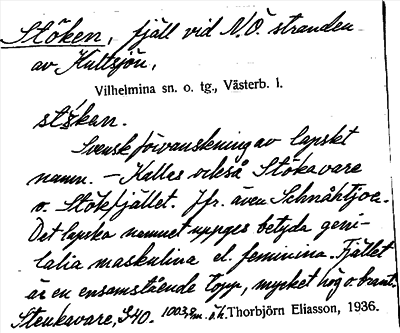 Stöken, fjäll vid N.Ö. stranden
av Kultsjön,
Vilhelmina sn. o. tg., Västerb. l.
stö̀kan.
Svensk förvanskning av lapskt
namn. – Kallas också Stökavare
o. Stökfjället. Jfr. även Schnåhtjoa.
Det lapska namnet uppges betyda geni-
talia maskulina el. feminina. Fjället
är en ensamstående topp, mycket hög o. brant.
Steukavare, S40. 1003,8 m. ö. h. Thorbjörn Eliasson, 1936.